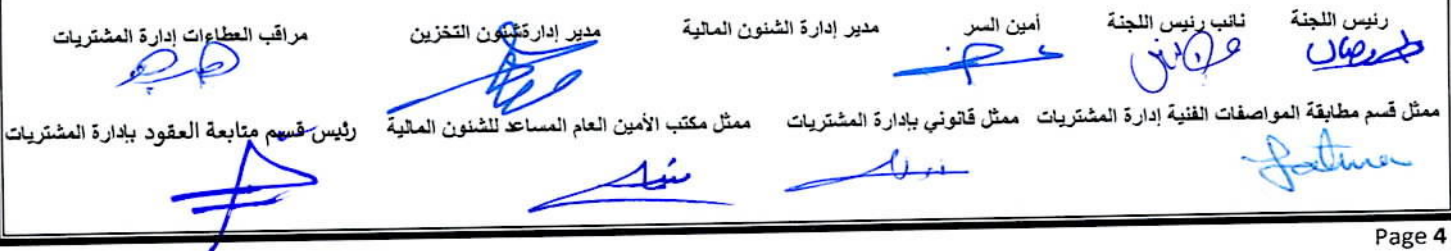 رئيس اللجنة نائب رئيس اللجنة أمين السر مدير إدارة الشئون المالية مدير إدارة شئون التخزين مراقب العطاءات إدارة المشتريات
ممثل قسم مطابقة المواصفات الفنية إدارة المشتريات ممثل قانوني بإدارة المشتريات ممثل مكتب الأمين العام المساعد للشئون المالية رئيس قسم متابعة العقود بإدارة المشتريات
Fatma
Page 4